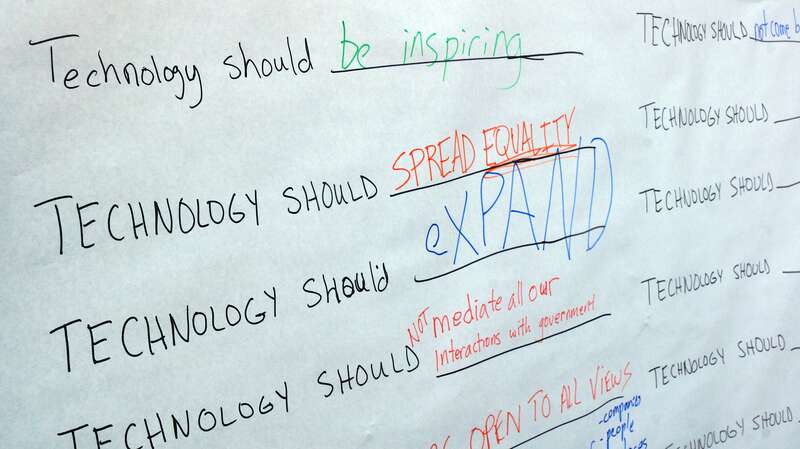 Technology should be inspiring
TECHNOLOGY SHOULD SPREAD EQUALITY
TECHNOLOGY Should eXPAND
TECHNOLOGY SHOULD NOT mediate all our
Interactions with government
TECHNOLOGY SHOULD OPEN TO ALL VIEWS
-companies
- people
TECHNOLOGY SHOULD not come
TECHNOLOGY SHOULD
TECHNOLOGY SHOULD
TECHNOLOGY SHOULD
TECHNOLOGY SHOULD
TECHNOLOGY SHOULD